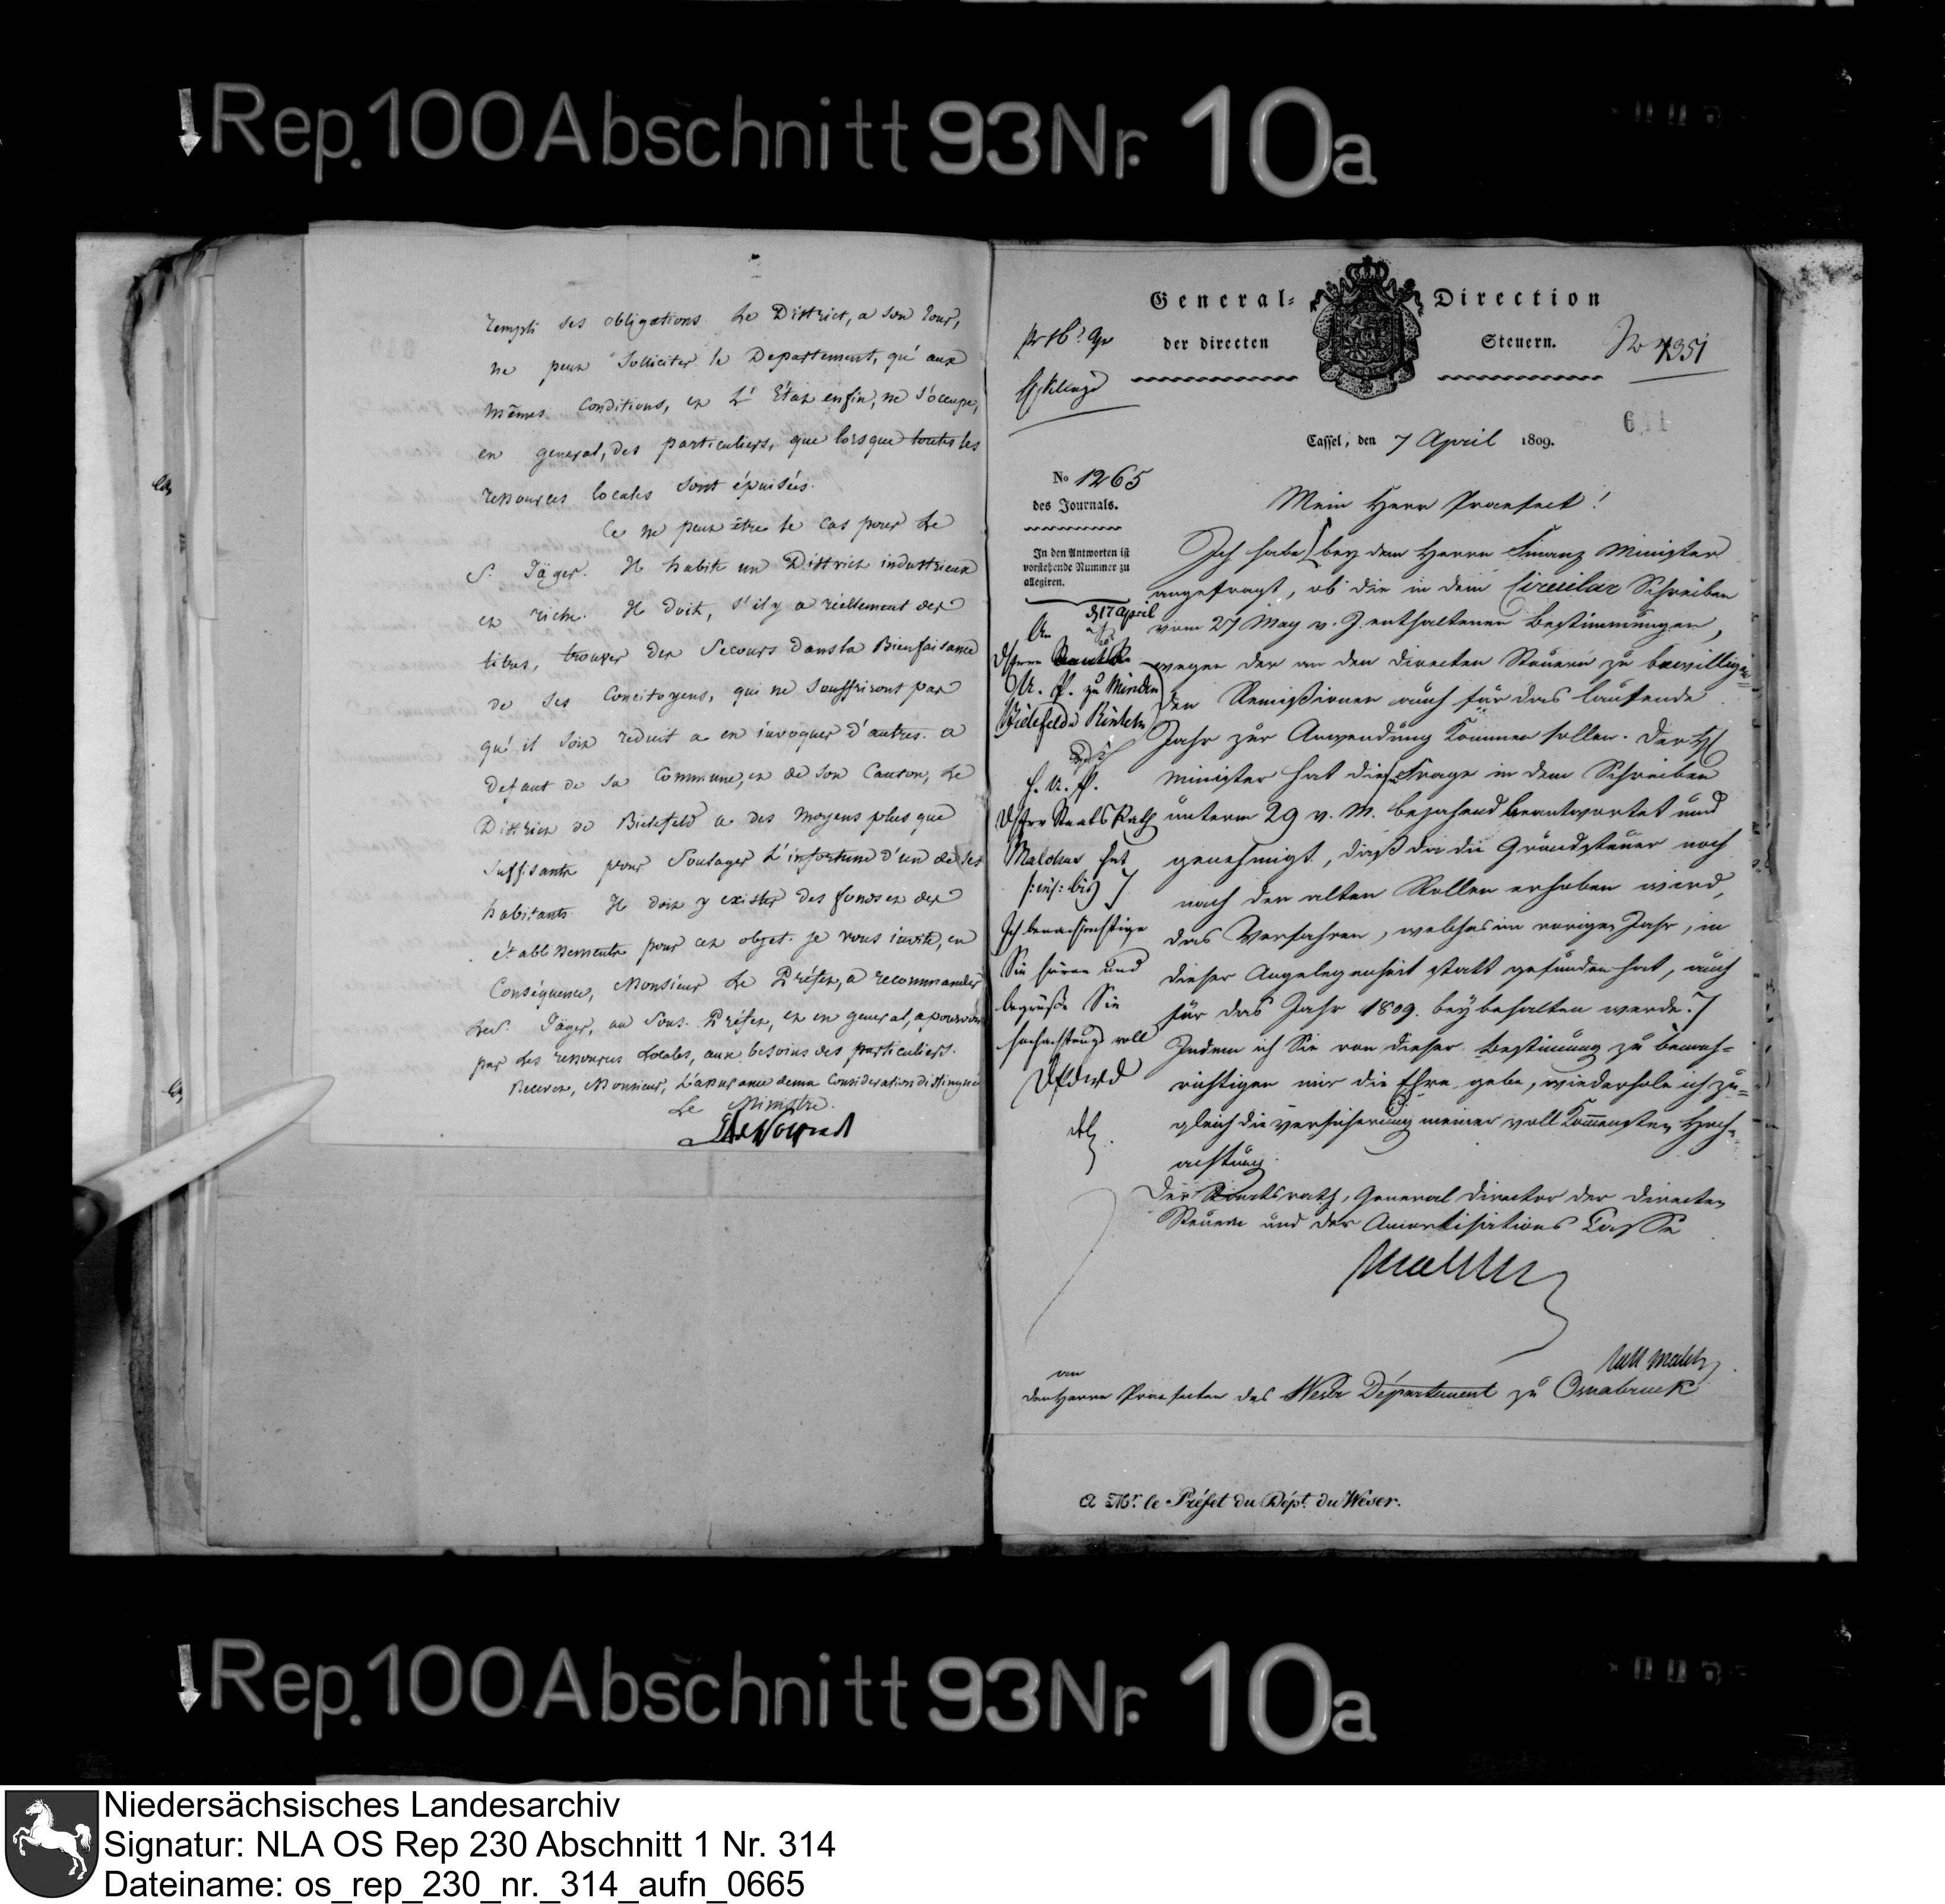 Rep. 100 Abschnitt 93 Nr. 10a
rempli ses obligations Le District, a son tour,
ne peut Solliciter le Departement, qu'aux
mêmes Conditions, et L'Etat enfin, ne s'occupe,
en general, des particuliers, que lorsque toutes les
ressources locales sont épuisées.
Ce ne peut être le Cas pour Le
S. Jäger. Il habite un District industrieux
et riche. Il doit, s'il y a réellement des
titres, trouver des Secours dans la Bienfaisance
de ses Concitoyens, qui ne Souffriront pas
qu'il soit reduit a en invoquer d'autres. a
defaut de sa Commune, et de son Canton, Le
District de Bielefeld a des moyens plus que
Suffisants pour Soulager L'infortune d'un de ses
habitants. Il doit y exister des fonds et des
établissements pour cet objet. je vous invite, en
Conséquence, Monsieur Le Préfet, a recommander
Led. Jäger, au Sous-Préfet, et en general, a pourvoir
par les ressources Locales, aux besoins des particuliers.
Recevez, Monsieur, L'assurance de ma Consideration distinguée
Le Ministre.
General- Direction
der directen Steuern.
No 4351
611
Cassel, den 7 April 1809.
No 1265
des Journals.
In den Antworten ist
vorstehende Nummer zu
allegiren.
Mein Herr Praefect!
Ich habe bey dem Herrn Finanz Minister
angefragt, ob die in dem Circular Schreiben
vom 27 May v. J. enthaltenen Bestimmungen,
wegen der an den directen Steuern zu bewilligen-
den Remißionen auch für das laufende
Jahr zur Anwendung kommen sollen. Der H.
Minister hat diese Frage in dem Schreiben
unterm 29 v. M. bejahend beantwortet und
genehmigt, daß da die Grundsteuer noch
nach den alten Rollen erhoben wird,
das Verfahren, welches im vorigen Jahr, in
dieser Angelegenheit statt gefunden hat, auch
für das Jahr 1809. beybehalten werde.
Indem ich Sie von dieser Bestimmung zu benach-
richtigen mir die Ehre gebe, wiederhole ich zu-
gleich die Versicherung meiner vollkommensten Hoch-
achtung.
Der Staatsrath, General Director der directen
Steuern und der Amortisations Casse
Malchus
d 17 April
An
U. P. zu Minden
Bielefeld Rinteln
H. U. P.
Der Herr Staats Rath
Malchus hat
bis
Ich benachrichtige
Sie hievon und
begrüße Sie
hochachtungsvoll
an
den Herrn Praefecten des Weser Département zu Osnabruck
A Mr. le Préfet du Dépt. du Weser.
Rep. 100 Abschnitt 93 Nr. 10a
Niedersächsisches Landesarchiv
Signatur: NLA OS Rep 230 Abschnitt 1 Nr. 314
Dateiname: os_rep_230_nr._314_aufn_0665